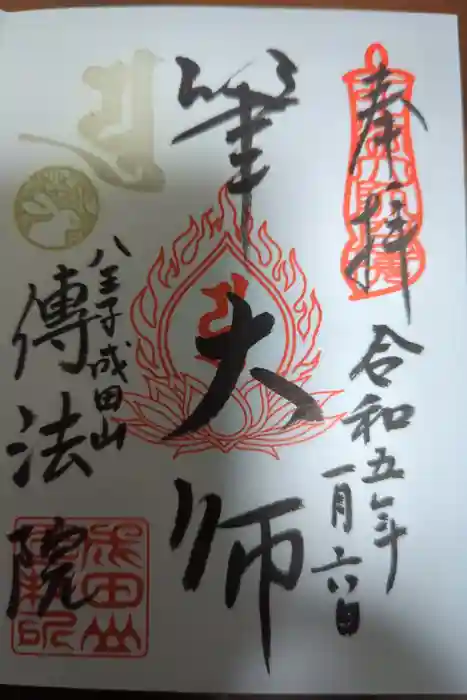 奉拝
令和五年
一月六日
筆大師
八王子成田山
傳法院
成田山